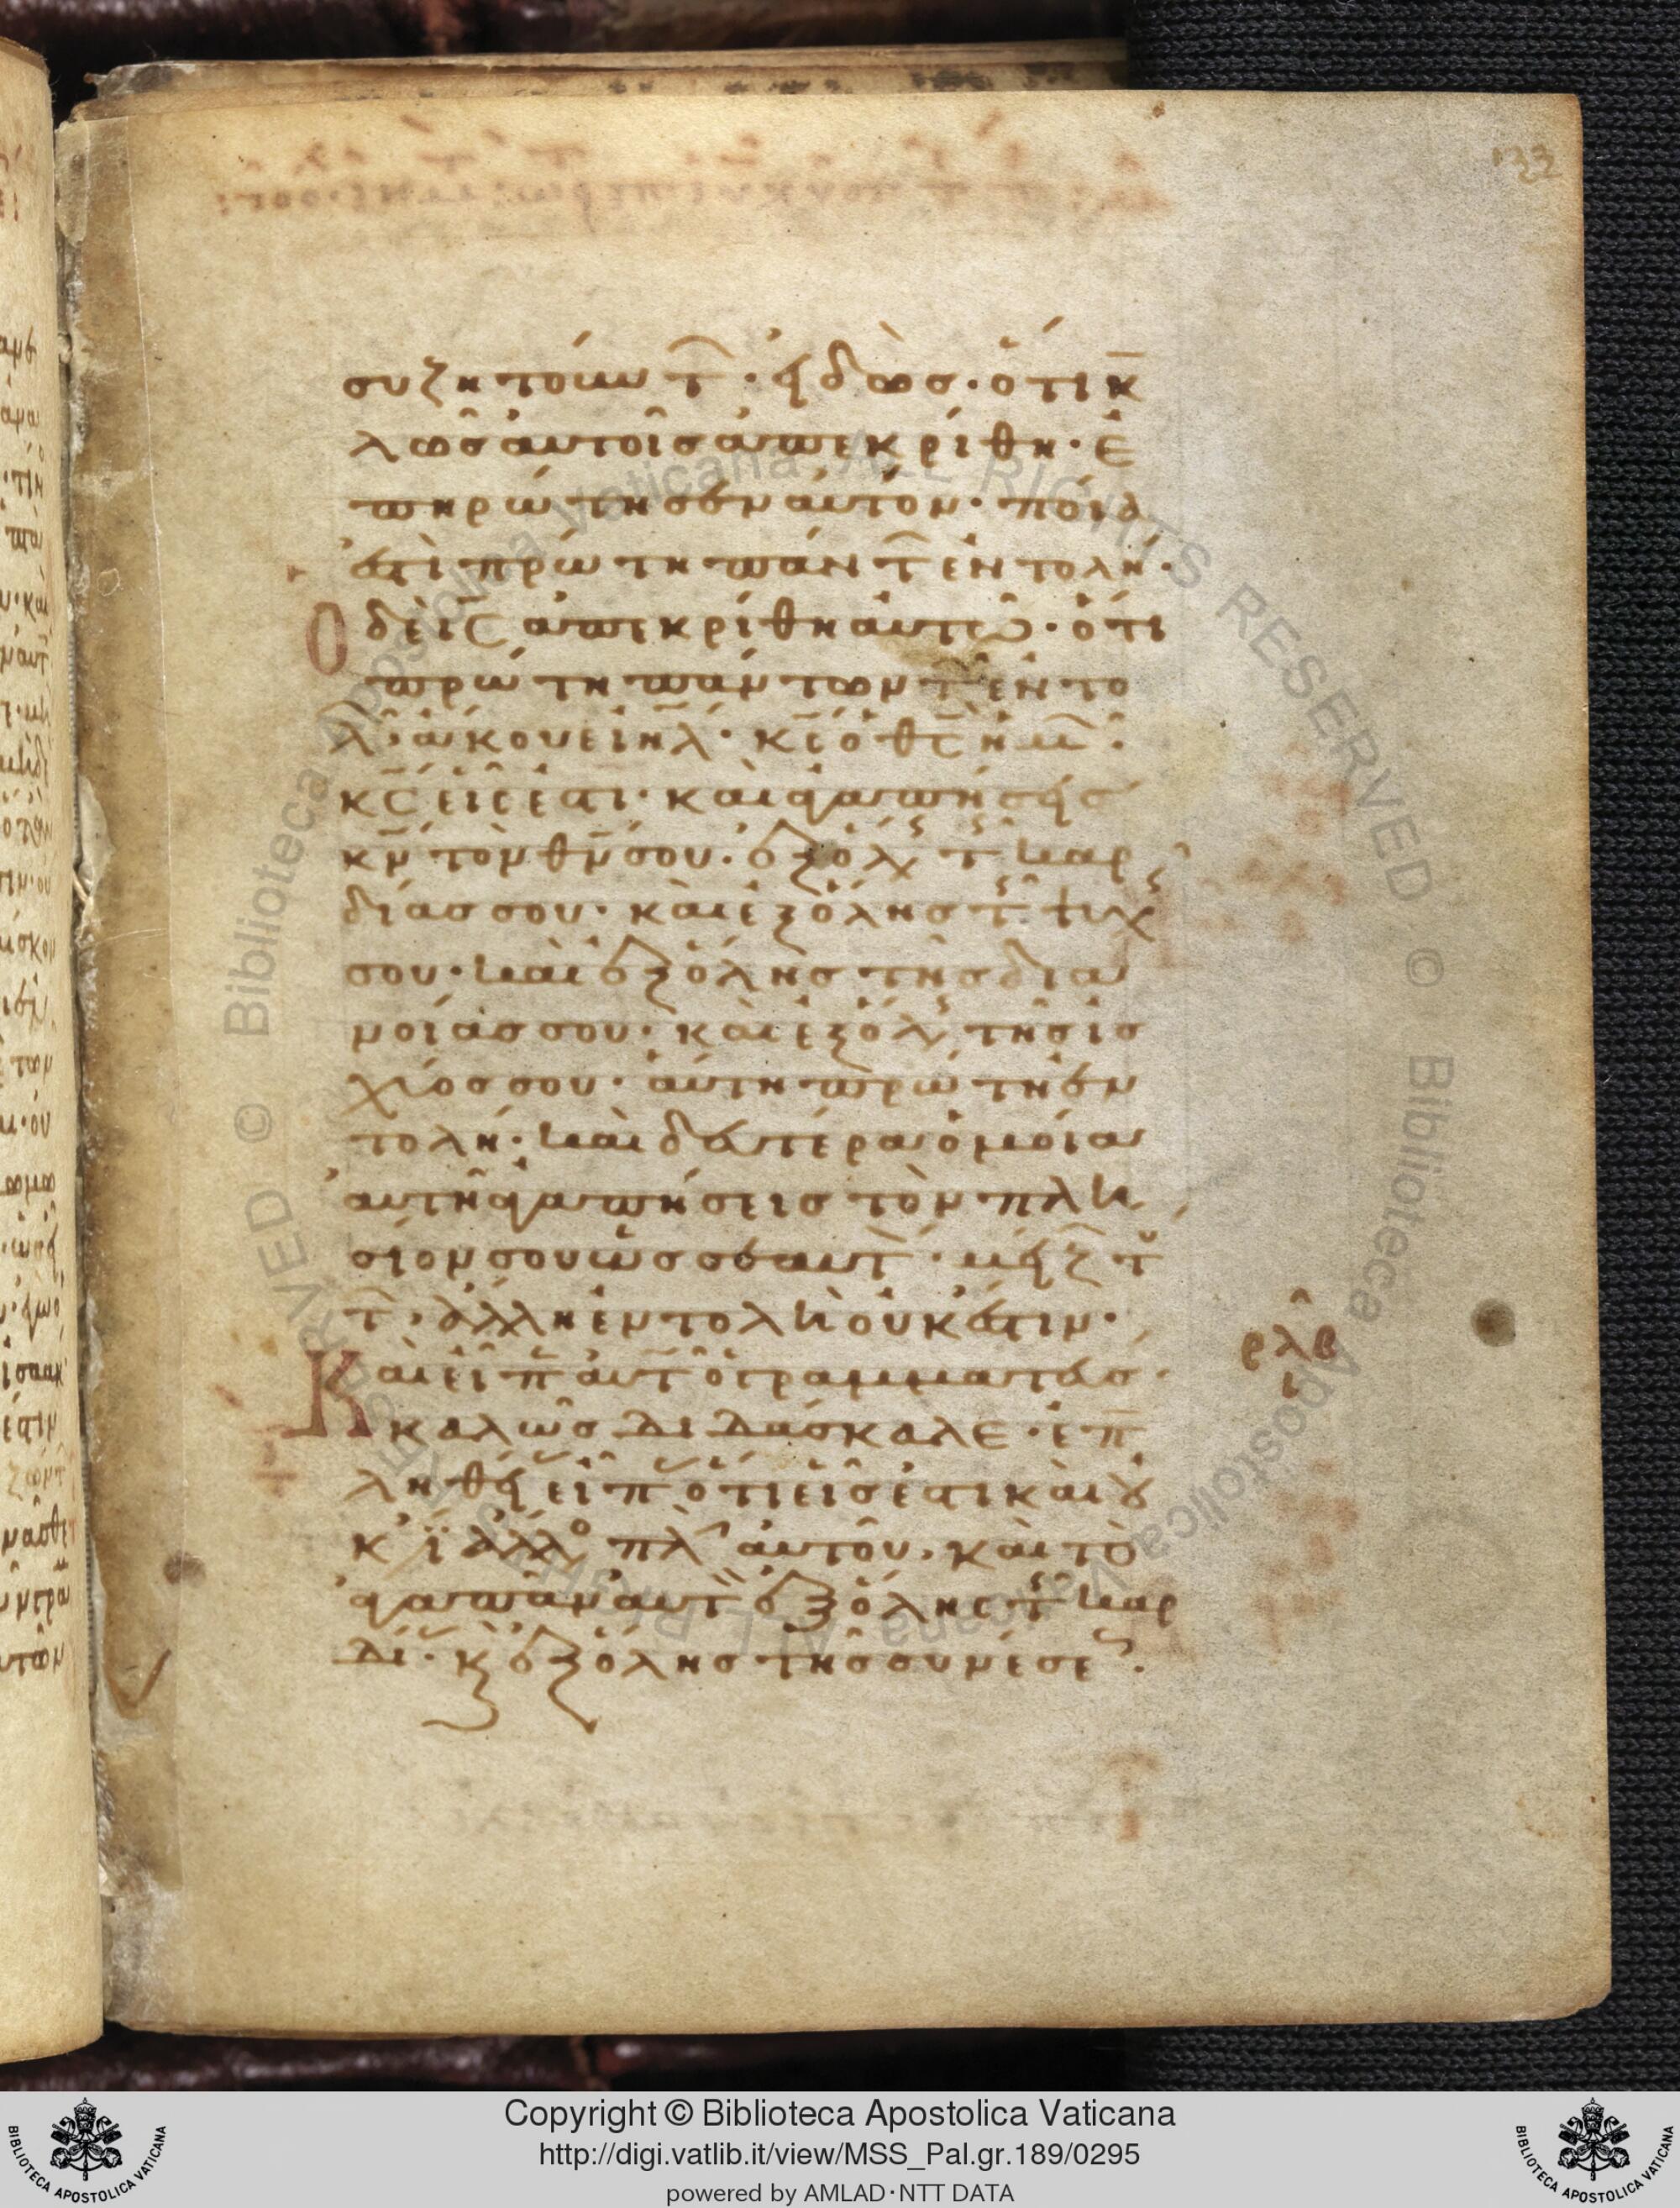 133
συζητούντ · εἰδὼσ · ὅτι κ
λῶσ αὐτοῖσ ἀπεκρίθη · ἐ
πηρώτησεν αὐτόν · ποία
ἐστὶ πρώτη πάντ ἐντολή ·
Ο δὲ ις ἀπεκρίθη αὐτῶ · ὅτι
πρώτη πάντων τ ἐντο
λ · ἄκουε ιηλ · κς ὁ θς ημ ·
κς εἷς ἐστι · καὶ ἀγαπήσεισ
κν τὸν θν σου · ἐξ ὅλ τ καρ
δίασ σου · καὶ ἐξ ὅλησ τ ψυχ
σου · καὶ ἐξ ὅλησ τῆσ δια
νοίασ σου · καὶ ἐξ ὅλ τῆσ ἰσ
χύοσ σου · αὕτη πρώτη ἐν
τολή · καὶ δευτέρα ὁμοία
αὐτῆ ἀγαπήσεισ τὸν πλη
σίον σου ὡσ σεαυτ · μείζ τού
τ · ἄλλη ἐντολὴ οὐκ ἔστιν ·
Καὶ εἶπ αὐτ ὁ γραμματεύσ ·
καλῶσ διδάσκαλε · ἐπ
ληθεί εἶπ ὅτι εἷσ ἐστι καὶ οὐ
κ ἔ ἄλλο πλ αὐτοῦ · καὶ τὸ
ἀγαπᾶν αὐτ ἐξ ὅλησ τ καρ
δι · κ ἐξ ὅλησ τῆσ συνέσε ·
ρλβ
Copyright © Biblioteca Apostolica Vaticana
http://digi.vatlib.it/view/MSS_Pal.gr.189/0295
powered by AMLAD · NTT DATA
BIBLIOTECA APOSTOLICA VATICANA
BIBLIOTECA APOSTOLICA VATICANA